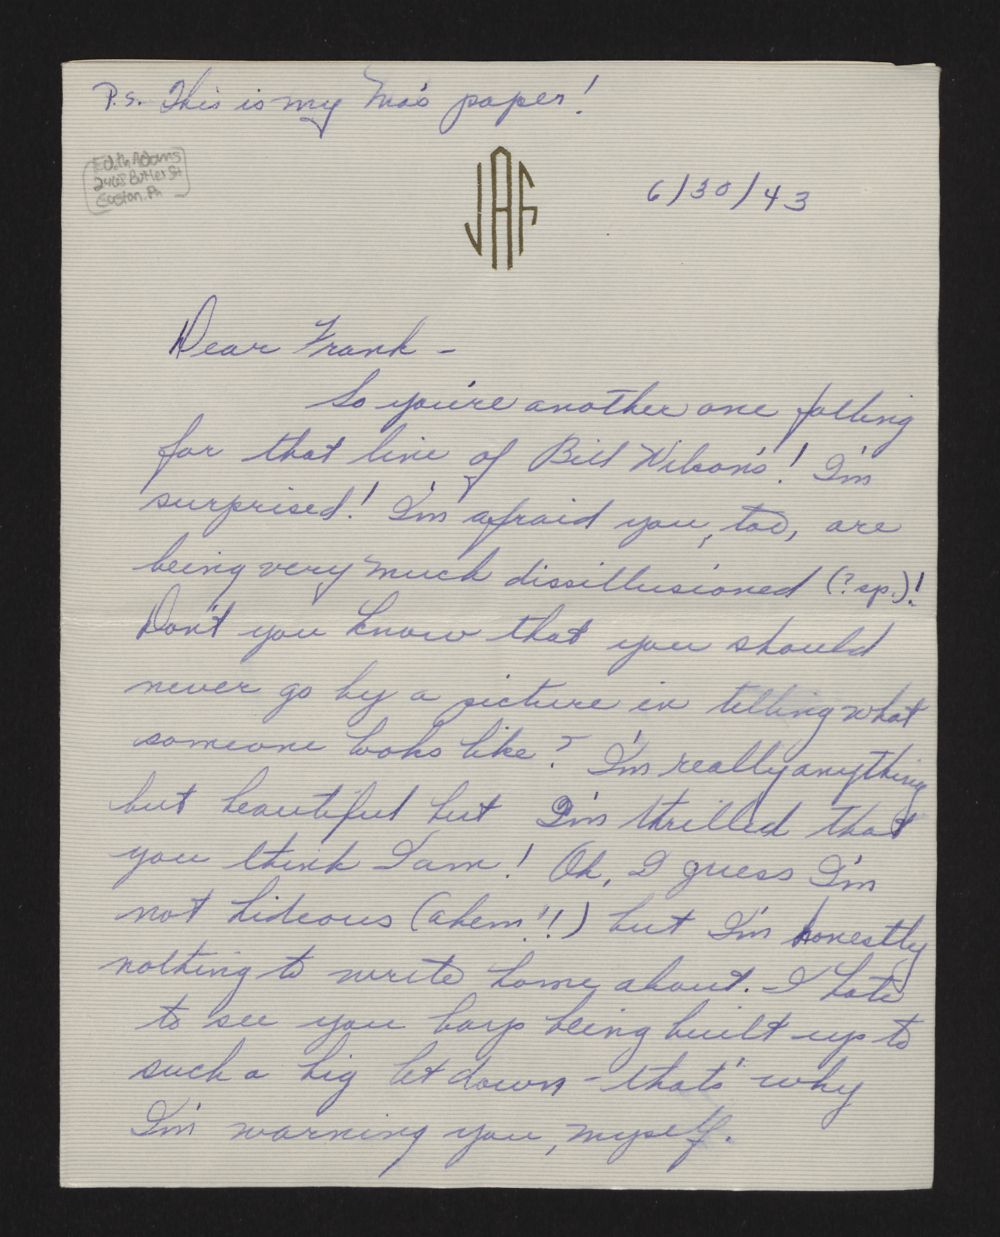 P.S. This is my Ma's paper!
Edith Adams
2468 Butler St
Easton, Pa
JAF
6/30/43
Dear Frank -
So you're another one falling
for that line of Bill Wilson's! I'm
surprised! I'm afraid you, too, are
being very much dissillusioned (? sp.)!
Don't you know that you should
never go by a picture in telling what
someone looks like? I'm really anything
but beautiful but I'm thrilled that
you think I am! Oh, I guess I'm
not hideous (ahem!!) but I'm honestly
nothing to write home about. - I hate
to see you boys being built up to
such a big let down - that's why
I'm warning you, myself.